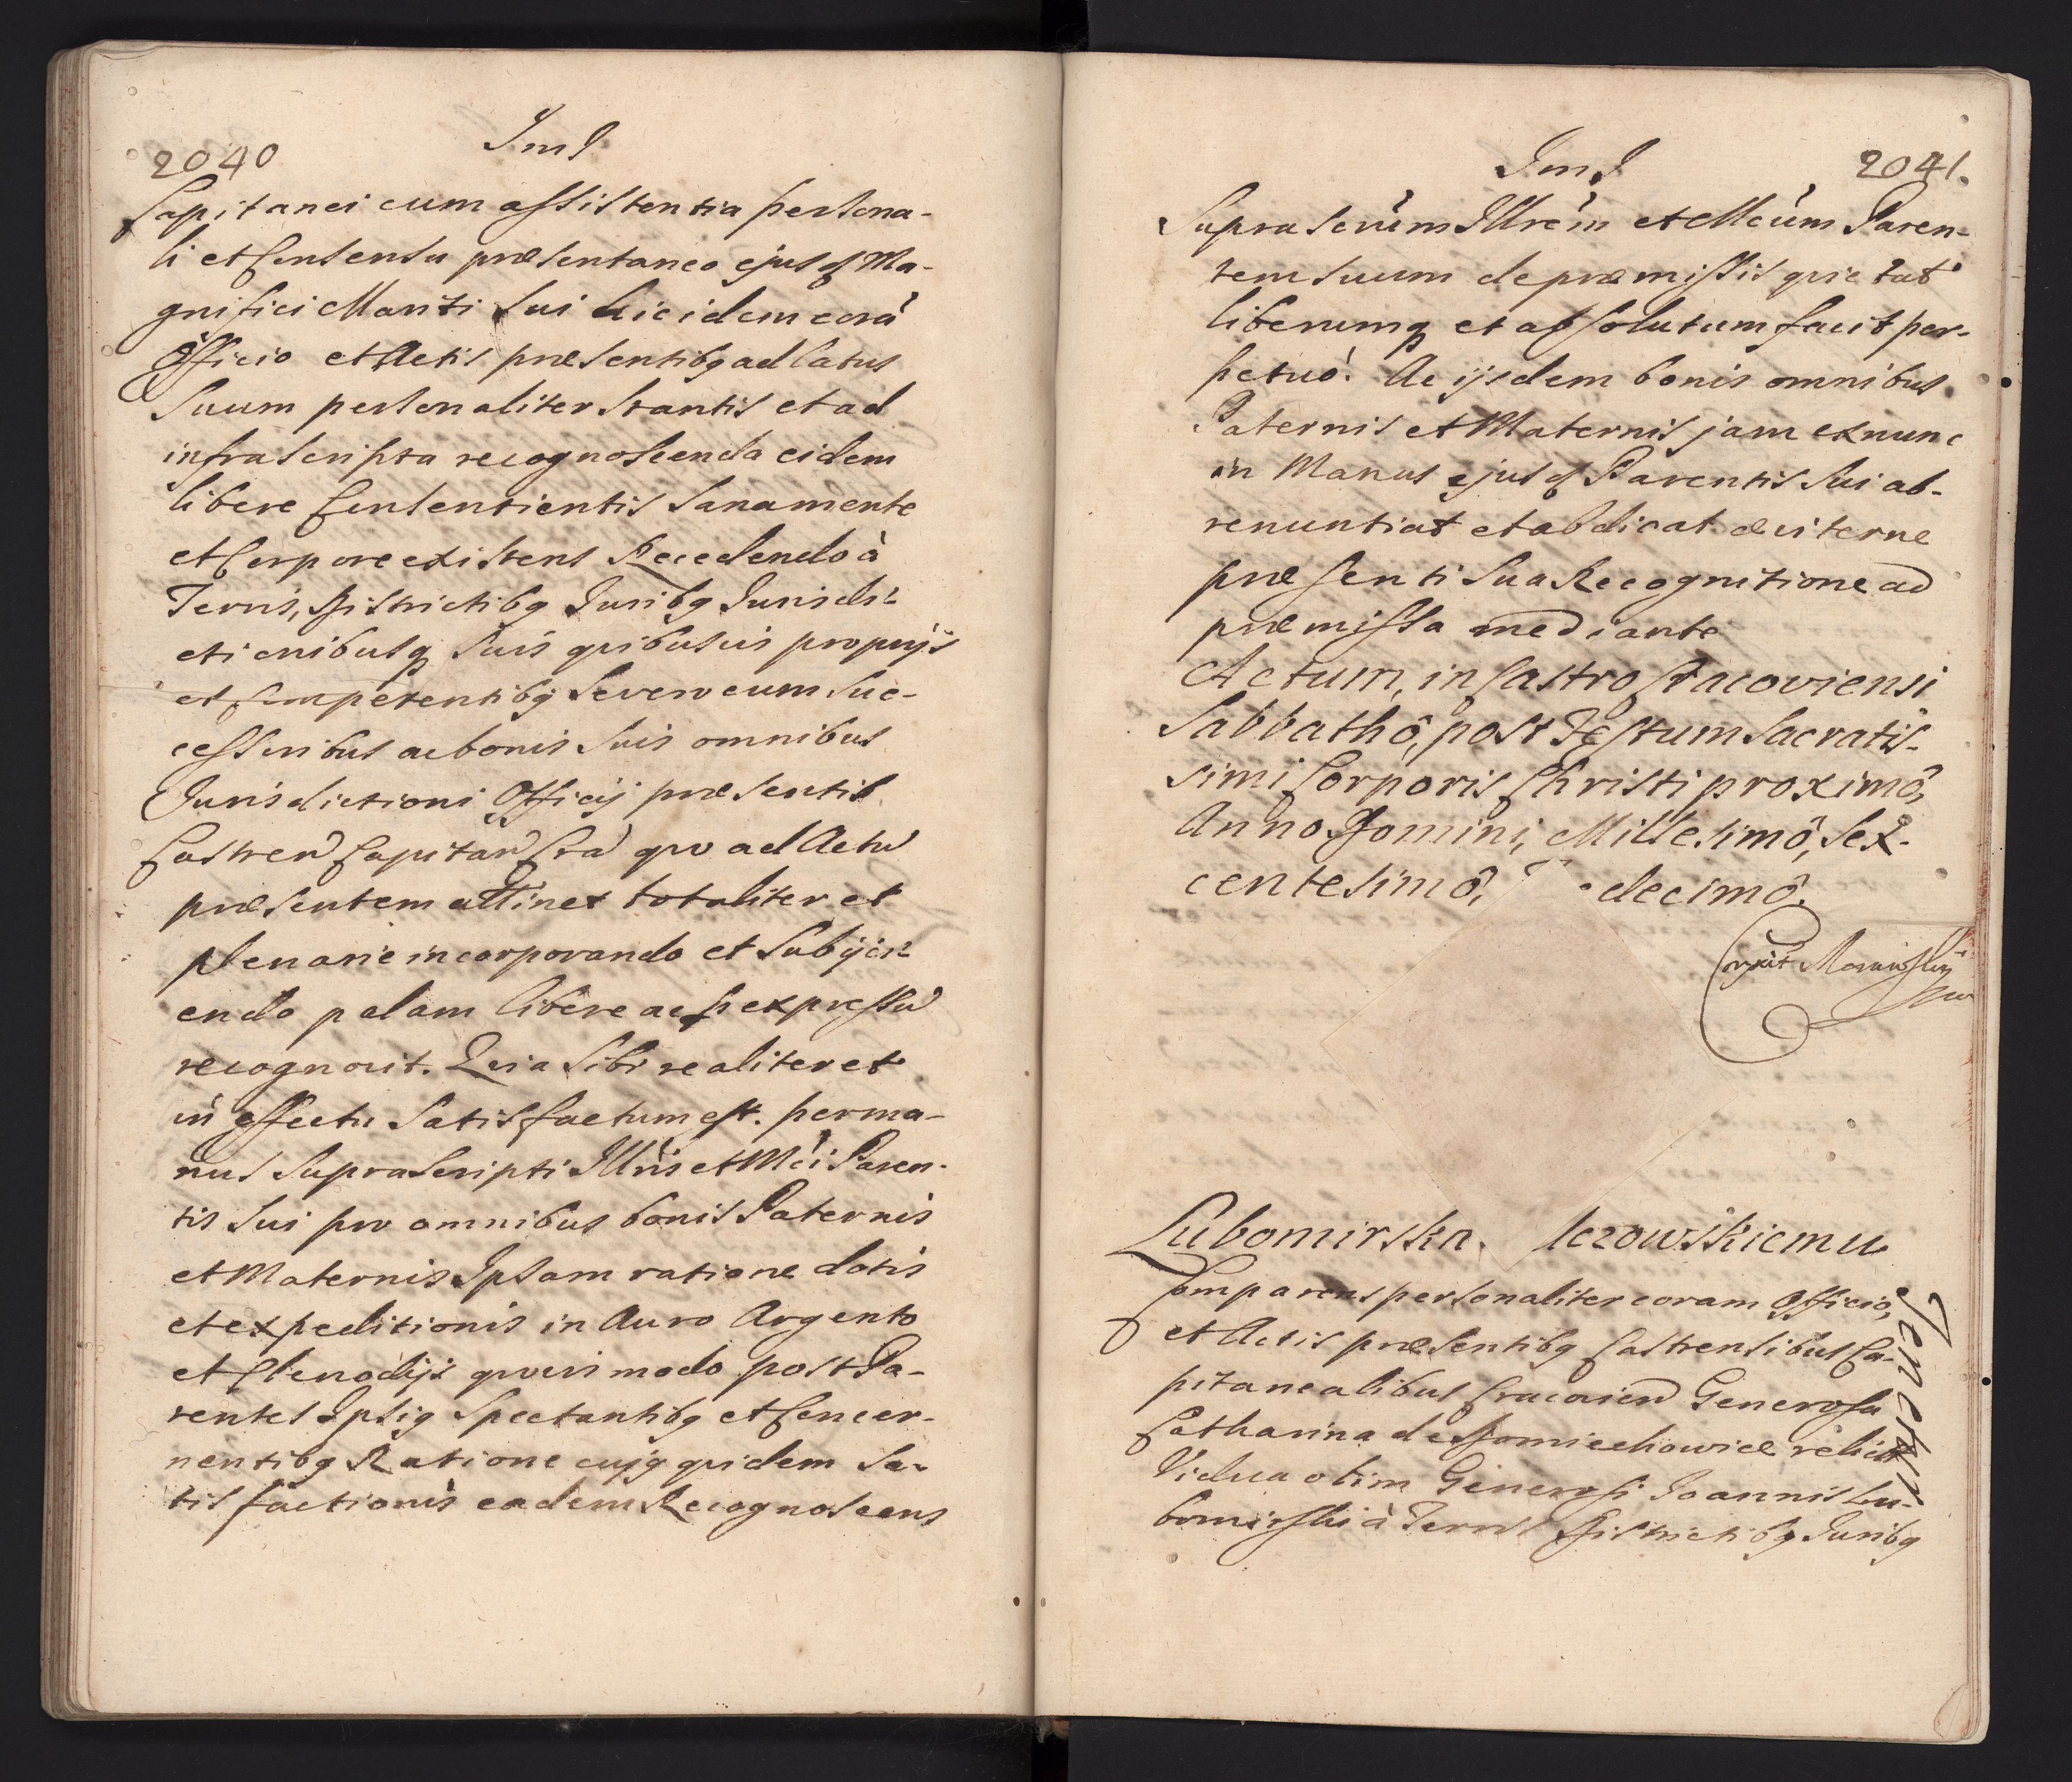 2040
Capitanei cum assistentia persona-
li et Consensu præsentaneo ejusq Ma-
gnifici Mariti sui hic idem corà
Officio et Actis præsentibq ad latus
suum personaliter stantis et ad
infrascripta recognoscenda eidem
libere Consentientis Sana mente
et Corpore existens Recedendo à
Terris, Districtibq Juribq Jurisdi-
ctionibusq suis quibusvis proprijs
et Competentibq se vero cum suc-
cessoribus ac bonis suis omnibus
Jurisdictioni Officij præsentis
Castren Capitan Cra quo ad Actu
præsentem attinet totaliter et
plenarie incorporando et Subijci-
endo palam libere ac p expressu
recognovit. Quia sibi realiter et
in effectu Satisfactum est. per ma-
nus Suprascripti Illris et Mci Paren-
tis sui pro omnibus bonis Paternis
et Maternis Ipsam ratione dotis
et expeditionis in Auro Argento
et Clenodijs quovis modo post Pa-
rentes Ipsiq Spectantibq et Concer-
nentibq Ratione cujq quidem Sa-
tisfactionis eadem Recognoscens
2041.
Suprascrùm Illrèm et Mcùm Paren-
tem suum de præmissis quietat
liberumq et absolutum facit per-
petuò. Ac ijsdem bonis omnibus
Paternis et Maternis jam ex nunc
in Manus ejusq Parentis sui ab-
renuntiat et abdicat æviterne
præsenti sua Recognitione ad
præmissa mediante
Actum, in Castro Cracoviensi
Sabbathô, post Festum Sacratis-
simi Corporis Christi proximô,
Anno Domini, Millesimô, Sex-
centesimô, decimô.
Lubomirska. lczowskiemu
Comparens personaliter coram Officio,
et Actis præsentibq Castrensibus Ca-
pitanealibus Cracovien Generosa
Catharina de Domiechowice relicta
Vidua olim Generosi Joannis Lu-
bomirski à Terris Districtibq Juribq